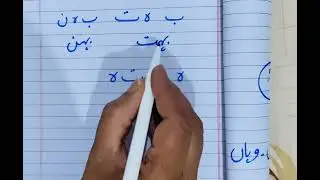 ب ہ ت ب ہ ن
بہت بہن
ہ ت ہ
۔وہاں